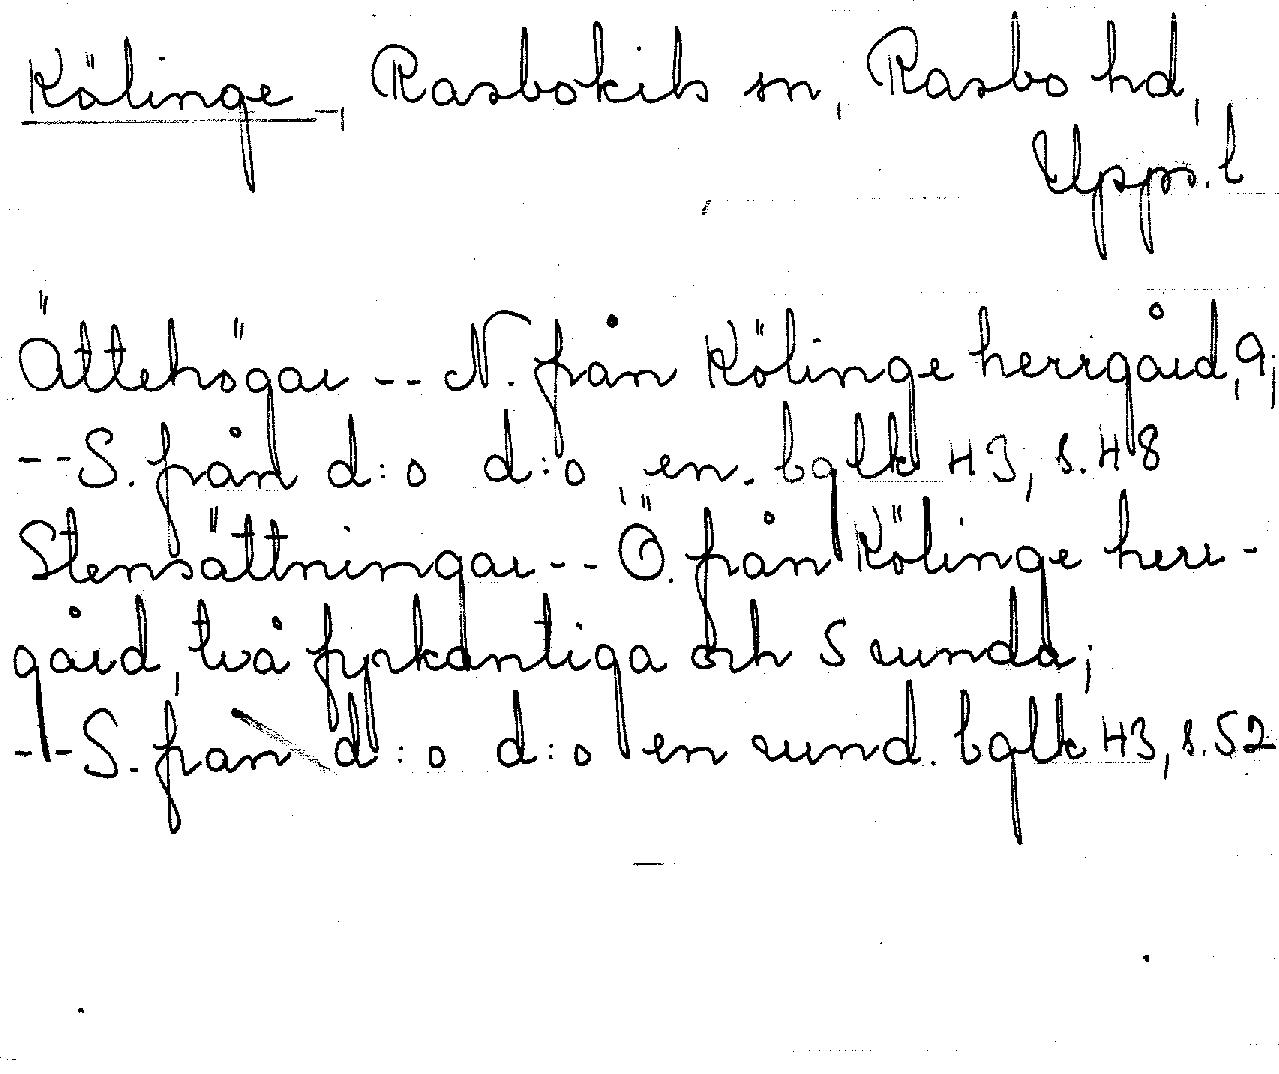 Kölinge -, Rasbokils sn, Rasbo hd,
Upps. l
Ättehögar -- N. från Kölinge herrgård, 9;
-- S. från d:o d:o en. bglk H3, s. 48
Stensättningar -- Ö. från Kölinge herr-
gård, två fyrkantiga och 5 runda;
-- S. från d:o d:o en rund. bglk H3, s. 52